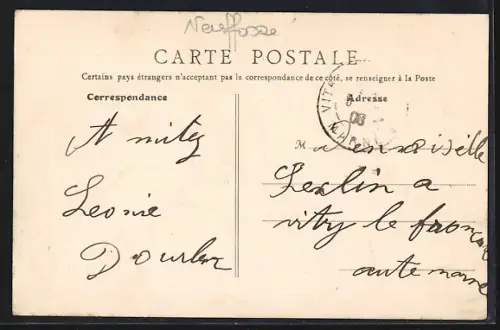 Neuffossé
CARTE POSTALE
Certains pays étrangers n'acceptant pas la correspondance de ce côté, se renseigner à la Poste
Correspondance
Adresse
VIT
08
MARNE
Amitiéz
Leonie
M a denoiselle
a
vitry le francois
aute marne